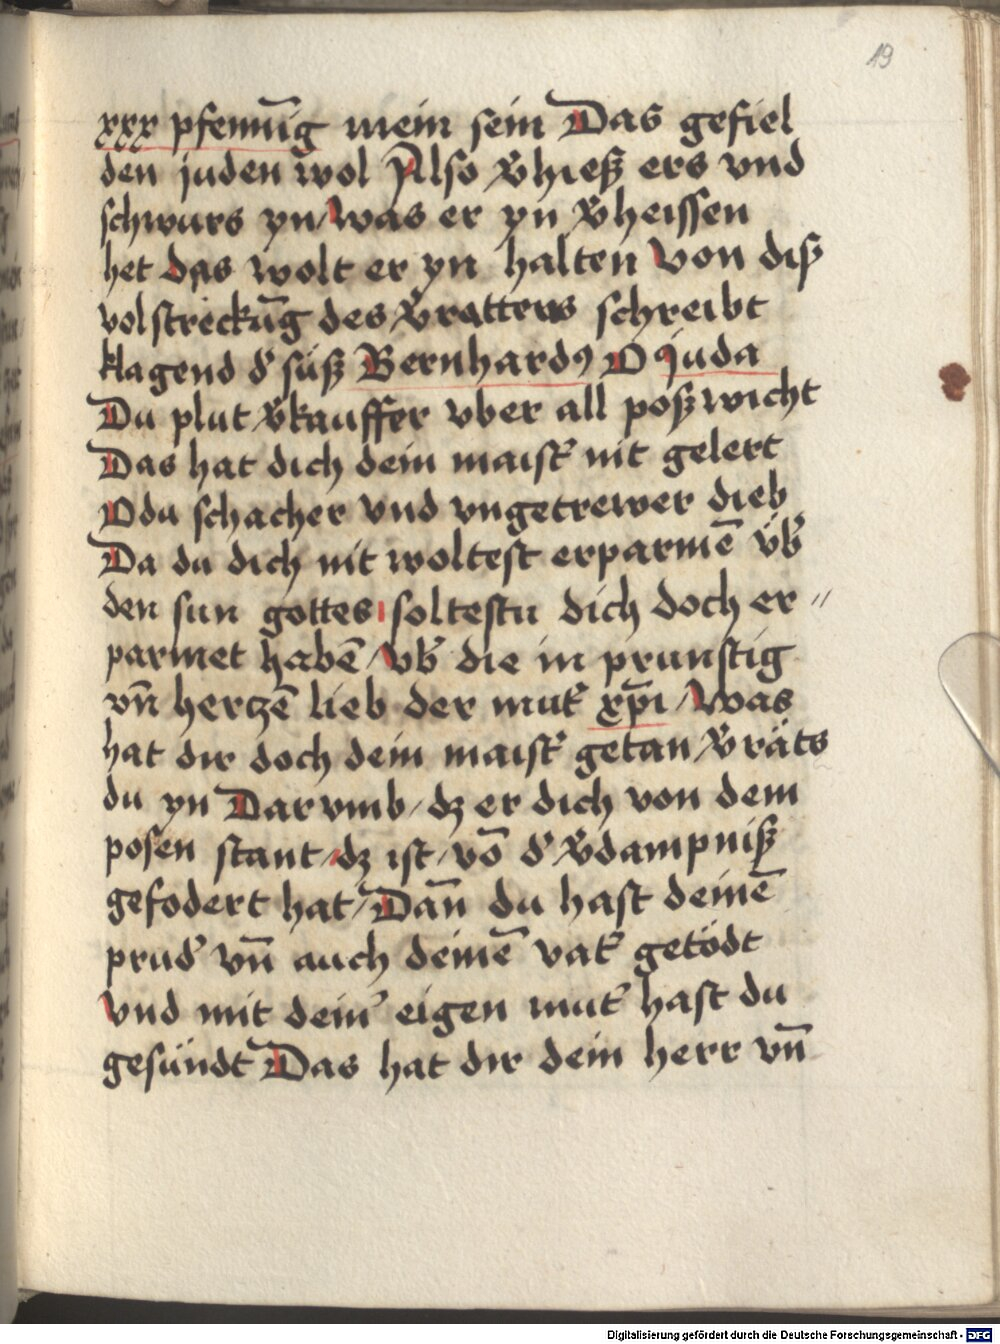 19
xxx pfenni̅g mein sein Das gefiel
den juden wol Also v̕hieß ers vnd
schwurs yn / was er yn v̕heissen
het das wolt er yn halten von diß
volstrecku̅g des v̕ratters schreibt
klagend d̕ süß Bernhardꝰ O juda
Du plut v̕kauffer vber all poßwicht
Das hat dich dein maist̕ nit gelert
O du schacher vnd vngetrewer dieb
Da du dich nit woltest erparme̅ üb̕
den sun gottes soltestu dich doch er⸗
parmet habe̅ / vb̕ die in prunstig
vn̅ hercze̅ lieb der mut̕ xp̅i / Was
hat dir doch dein maist̕ getan / v̕räts
du yn Darvmb / dz er dich von dem
posen stant / dz ist / vo̅ d̕ v̕dampniß
gefodert hat / Dan̅ du hast deine̅
prud̕ vn̅ auch deine̅ vat̕ getödt
vnd mit dein̕ eigen mut̕ hast du
gesündt Das hat dir dein herr vn̅
Digitalisierung gefördert durch die Deutsche Forschungsgemeinschaft - DFG